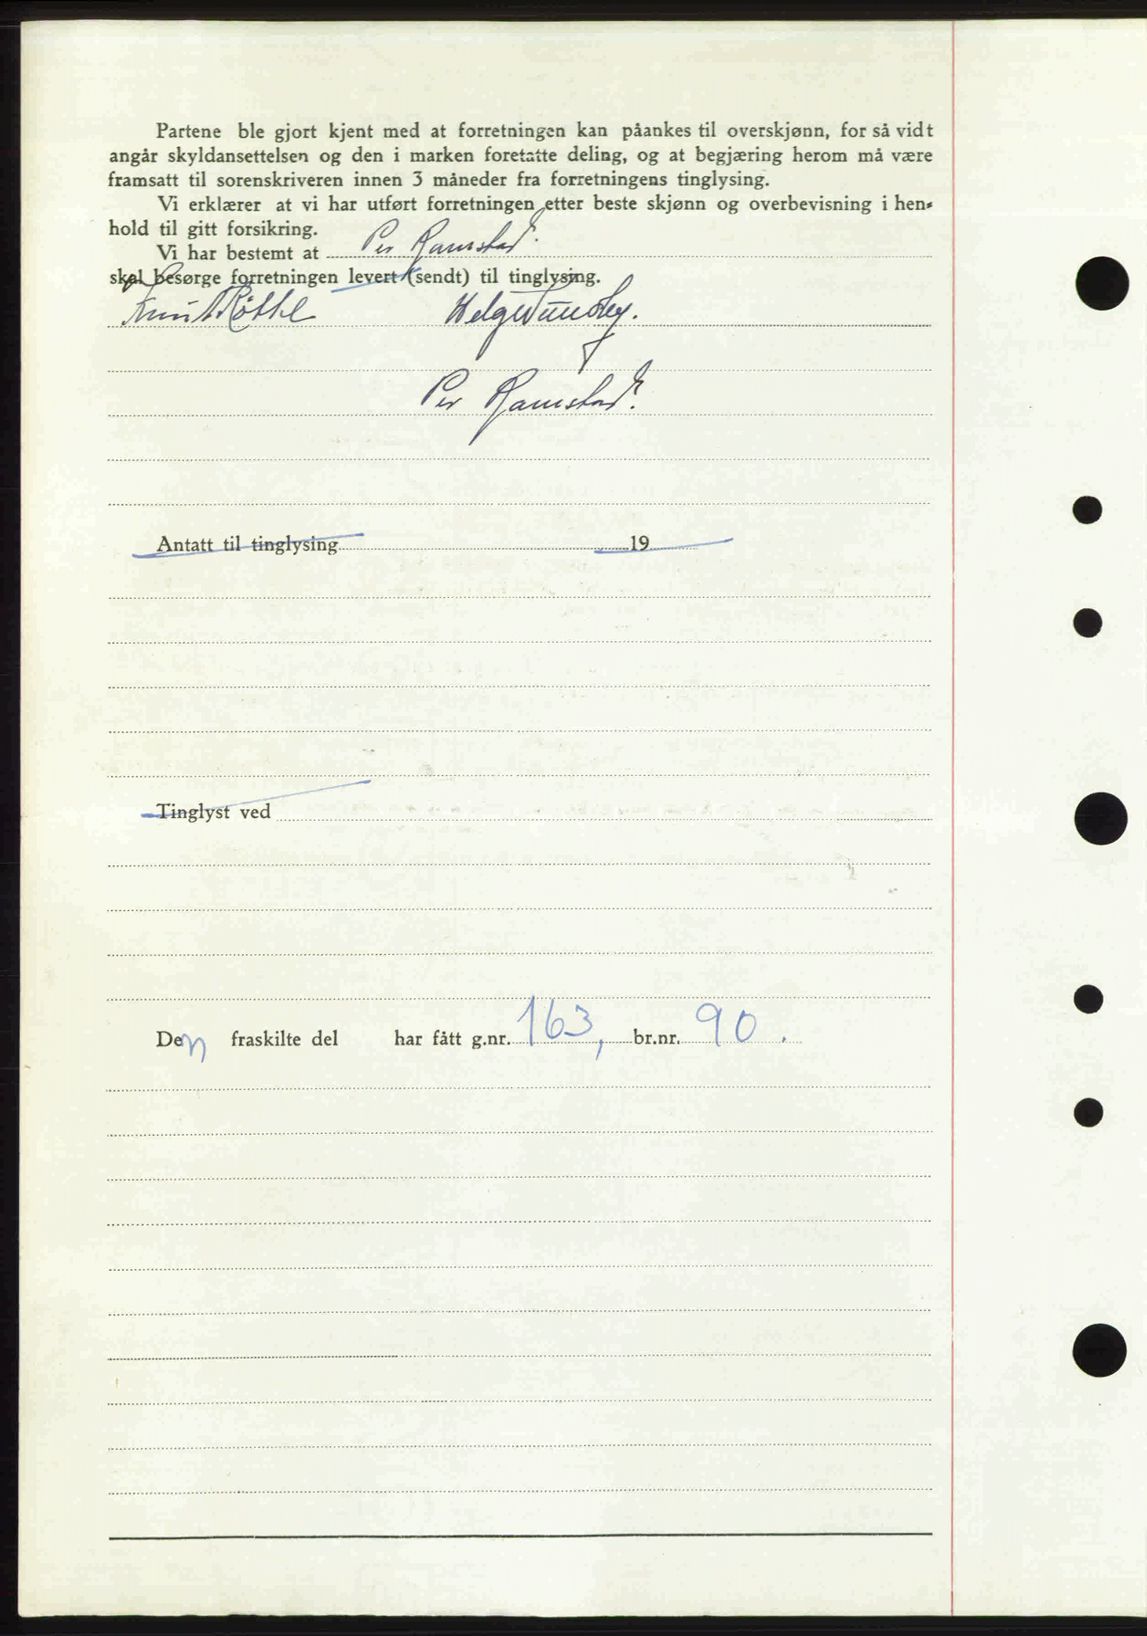 Partene ble gjort kjent med at forretningen kan påankes til overskjønn, for så vidt
angår skyldansettelsen og den i marken foretatte deling, og at begjæring herom må være
framsatt til sorenskriveren innen 3 måneder fra forretningens tinglysing.
Vi erklærer at vi har utført forretningen etter beste skjønn og overbevisning i hen-
hold til gitt forsikring.
Vi har bestemt at Per Ramstad.
skal besørge forretningen levert (sendt) til tinglysing.
Knut
Per Ramstad.
Antatt til tinglysing 19
Tinglyst ved
Den fraskilte del har fått g.nr. 163, br.nr. 90.